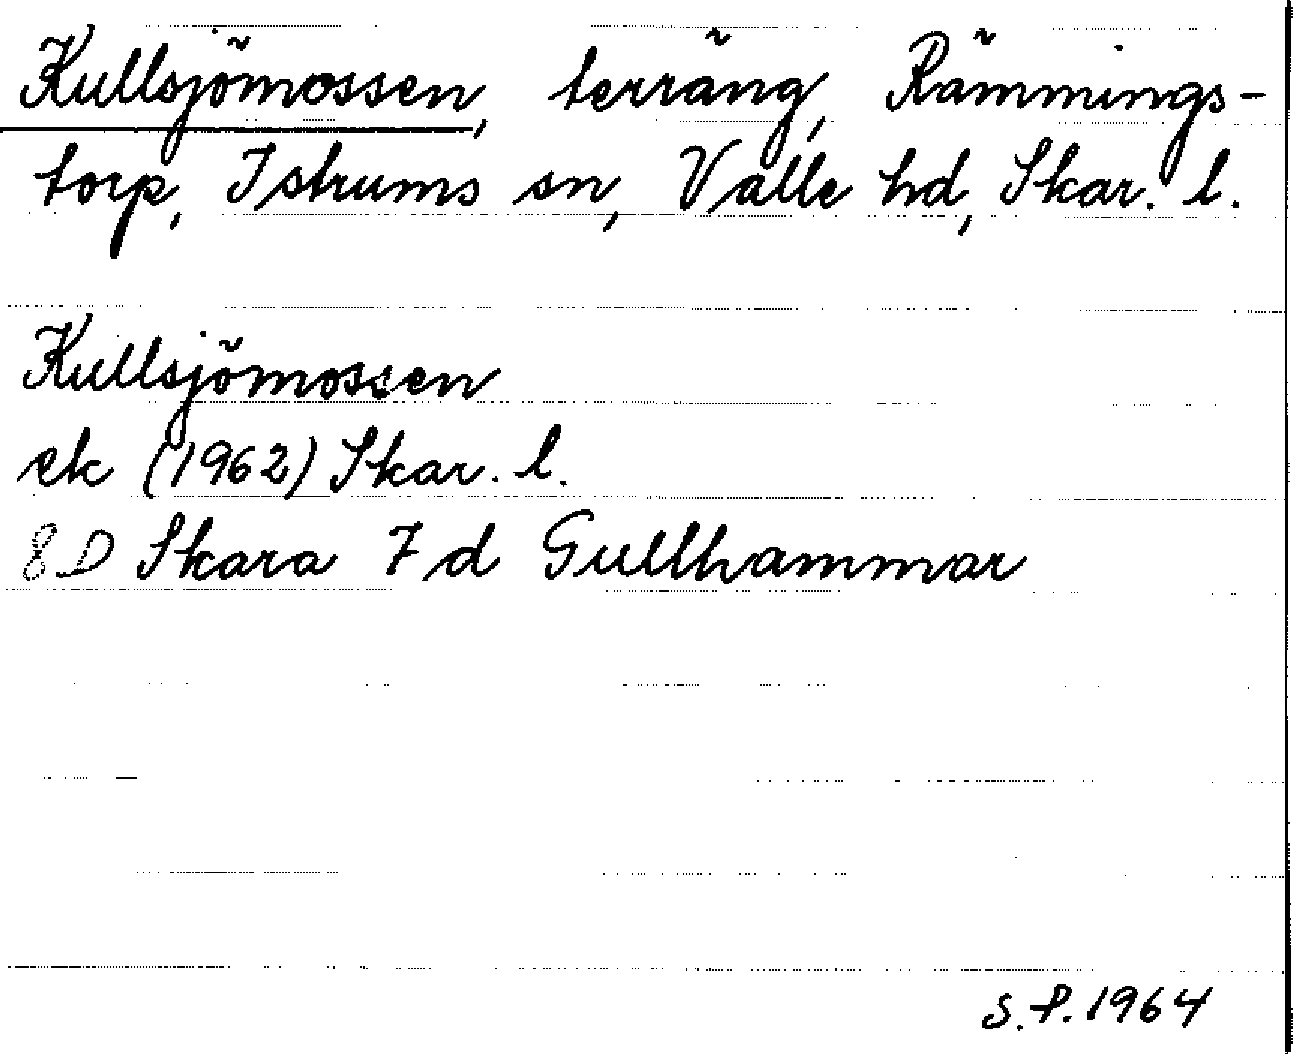 Kullsjömossen, terräng, Rämmings-
torp, Istrums sn, Valle hd, Skar. l.
Kullsjömossen
ek (1962) Skar. l.
8D Skara 7d Gullhammar
S.P. 1964